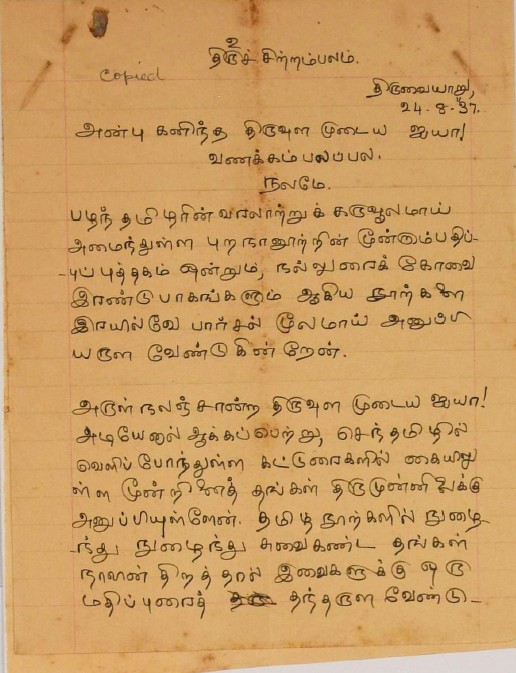 உ
திருச் சிற்றம்பலம்.
Copied
திருவையாறு,
24-8-37.
அன்பு கனிந்த திருவுள முடைய ஐயா!
வணக்கம் பலப்பல.
நலமே.
பழந் தமிழரின் வரலாற்றுக் கருவூலமாய்
அமைந்துள்ள புறநானூற்றின் மூன்றாம் பதிப்-
புப் புத்தகம் ஒன்றும், நல்லுரைக் கோவை
இரண்டு பாகங்களும் ஆகிய நூற்களை
இரயில்வே பார்சல் மூலமாய் அனுப்பி
யருள வேண்டுகின்றேன்.
அருள் நலஞ் சான்ற திருவுள முடைய ஐயா!
அடியேனால் ஆக்கப் பெற்று, செந்தமிழில்
வெளிப் போந்துள்ள கட்டுரைகளில் கையிலு
ள்ள மூன்றினைத் தங்கள் திருமுன்னிலைக்கு
அனுப்பியுள்ளேன். தமிழ் நூற்களில் நுழை-
ந்து நுழைந்து சுவைகண்ட தங்கள்
நாவன் திறத்தால் இவைகளுக்கு ஒரு
மதிப்புரைத் தந்தருள வேண்டு-